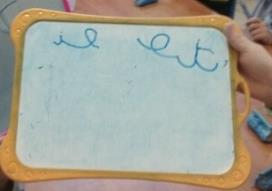 il est